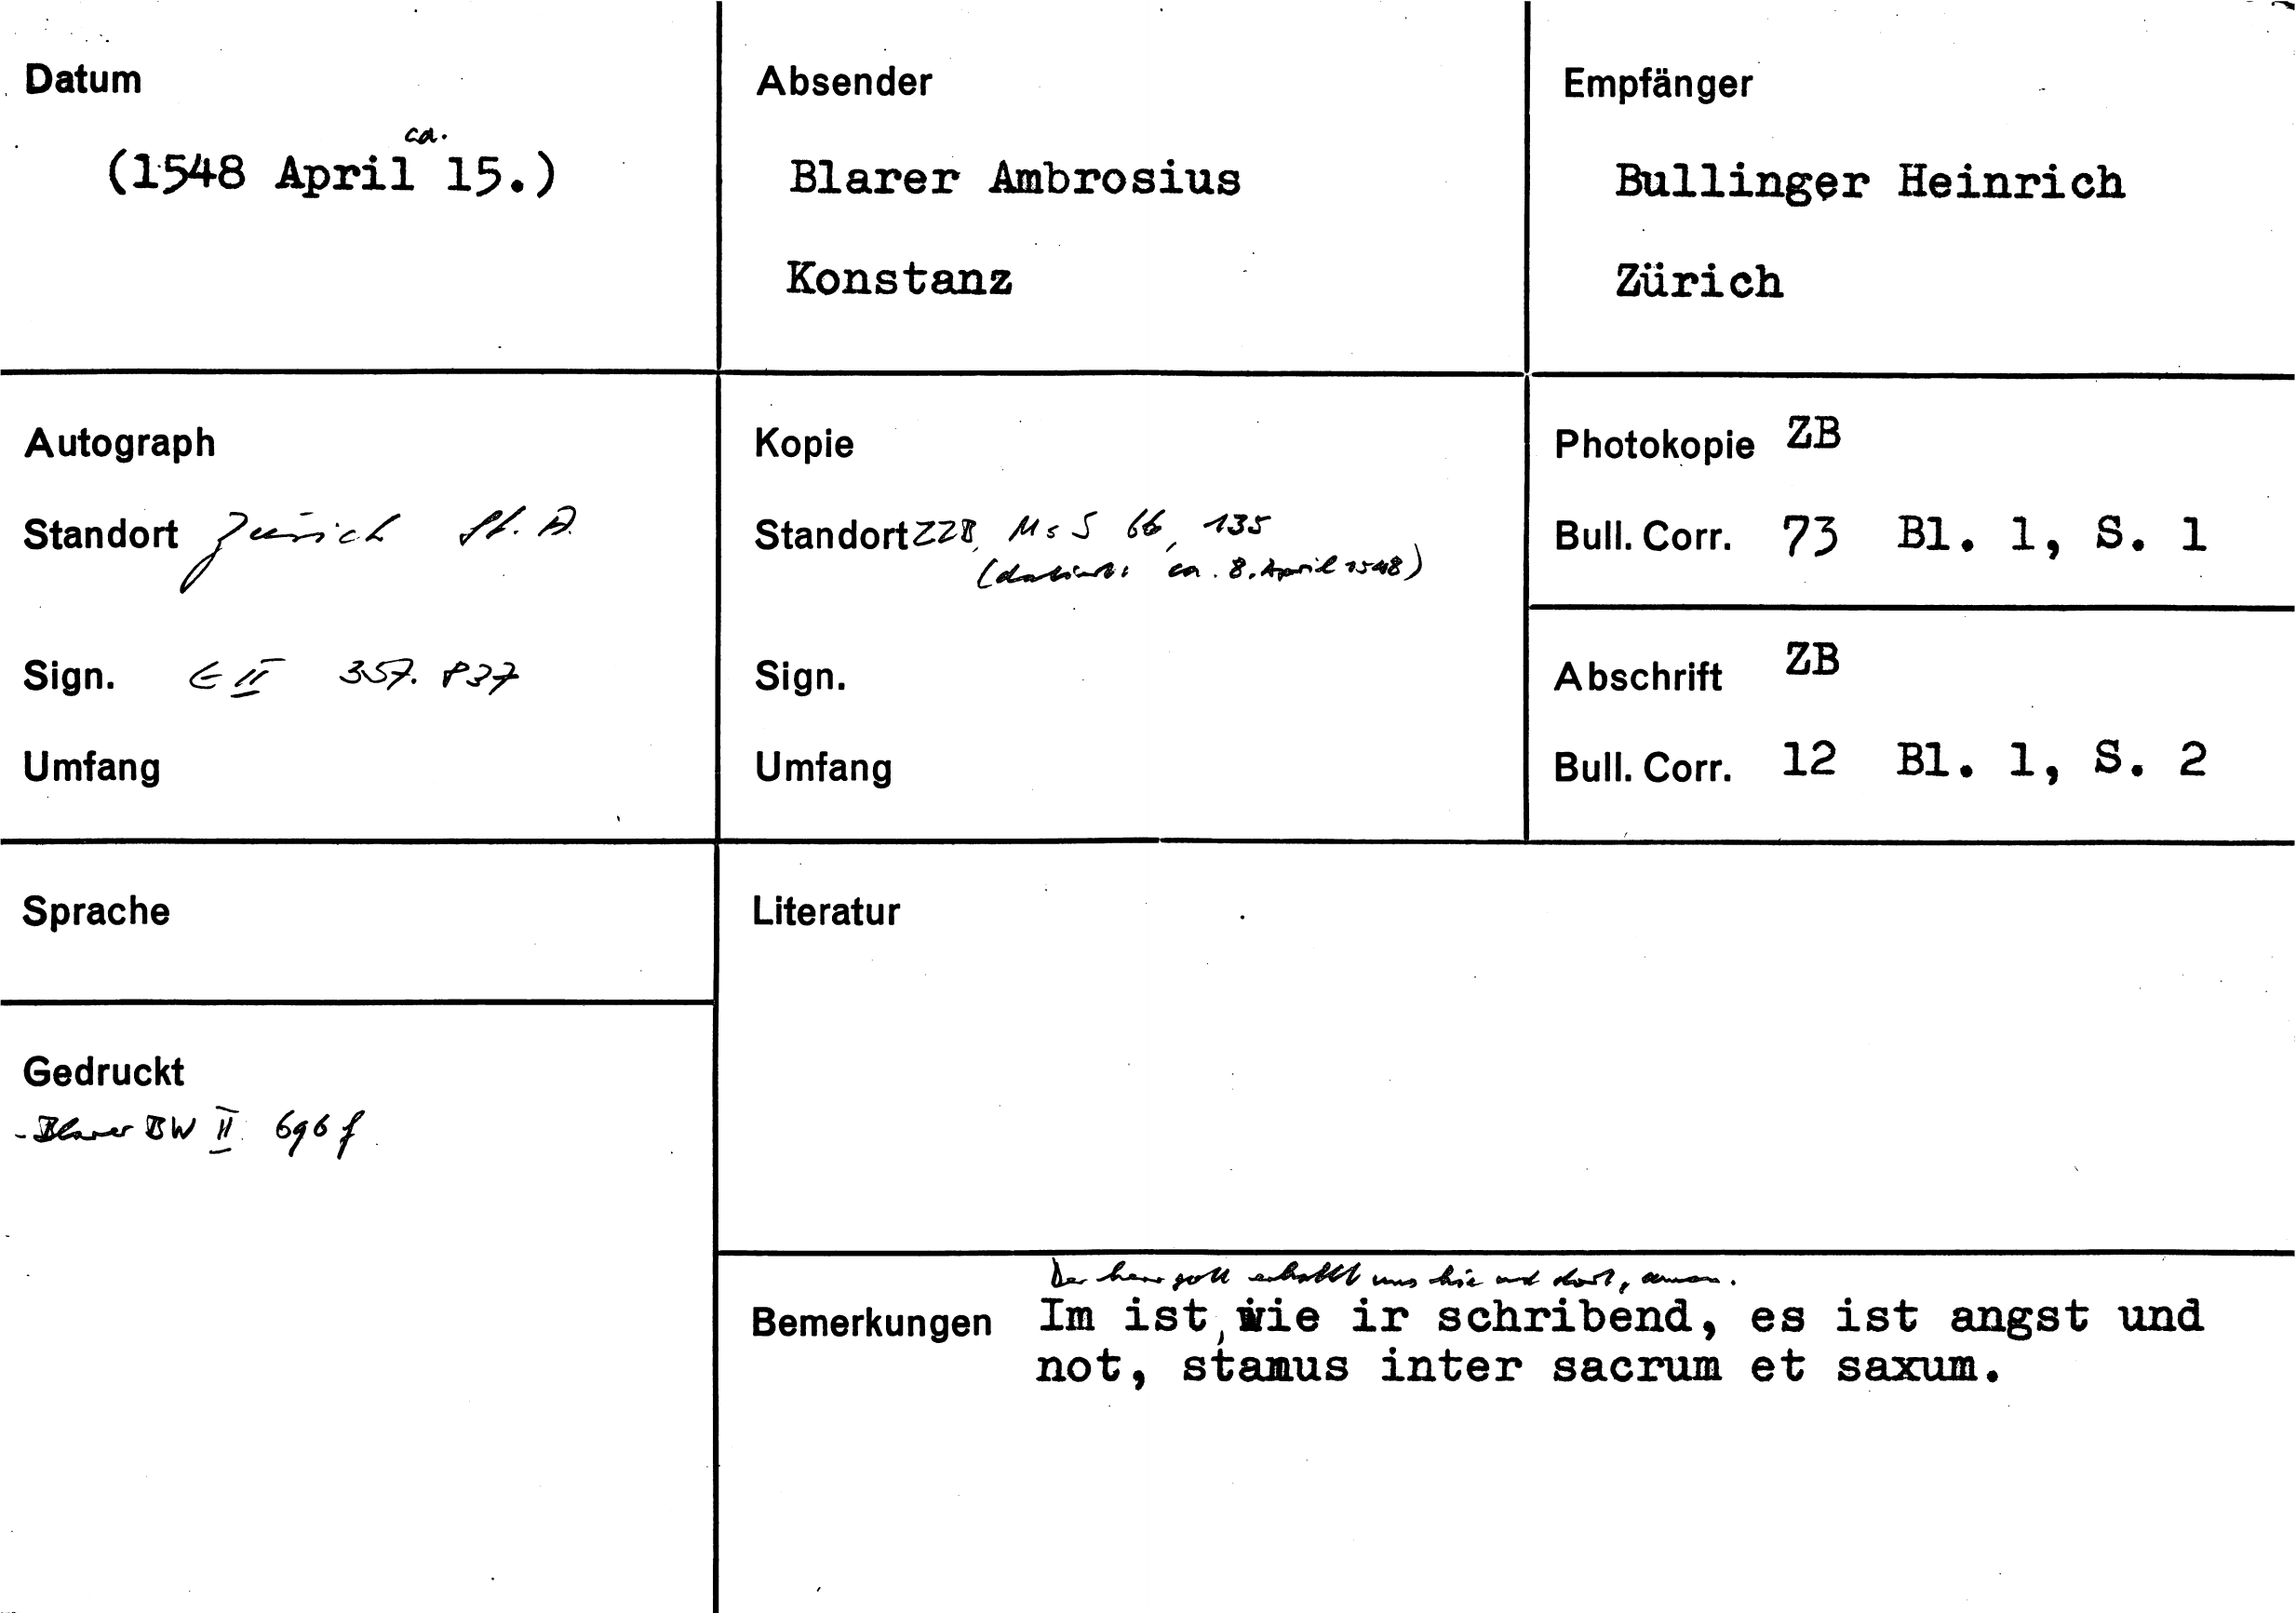 Datum
(1548 April ca. 15.)
Absender
Blarer Ambrosius
Konstanz
Empfänger
Bullinger Heinrich
Zürich
Autograph
Standort Zürich St. A.
Sign. E II 357. 837
Umfang
Kopie
Standort ZZB, Ms S 66, 135
(datiert: ca. 8. April 1548)
Sign.
Umfang
Photokopie ZB
Bull. Corr. 73 Bl. 1, S. 1
Abschrift ZB
Bull. Corr. 12 Bl. 1, S. 2
Sprache
Gedruckt
- Blarer BW II 696 f
Literatur
Der herr gott erhallt uns hie und dort, amen.
Bemerkungen Im ist, wie ir schribend, es ist angst und
not, stamus inter sacrum et saxum.